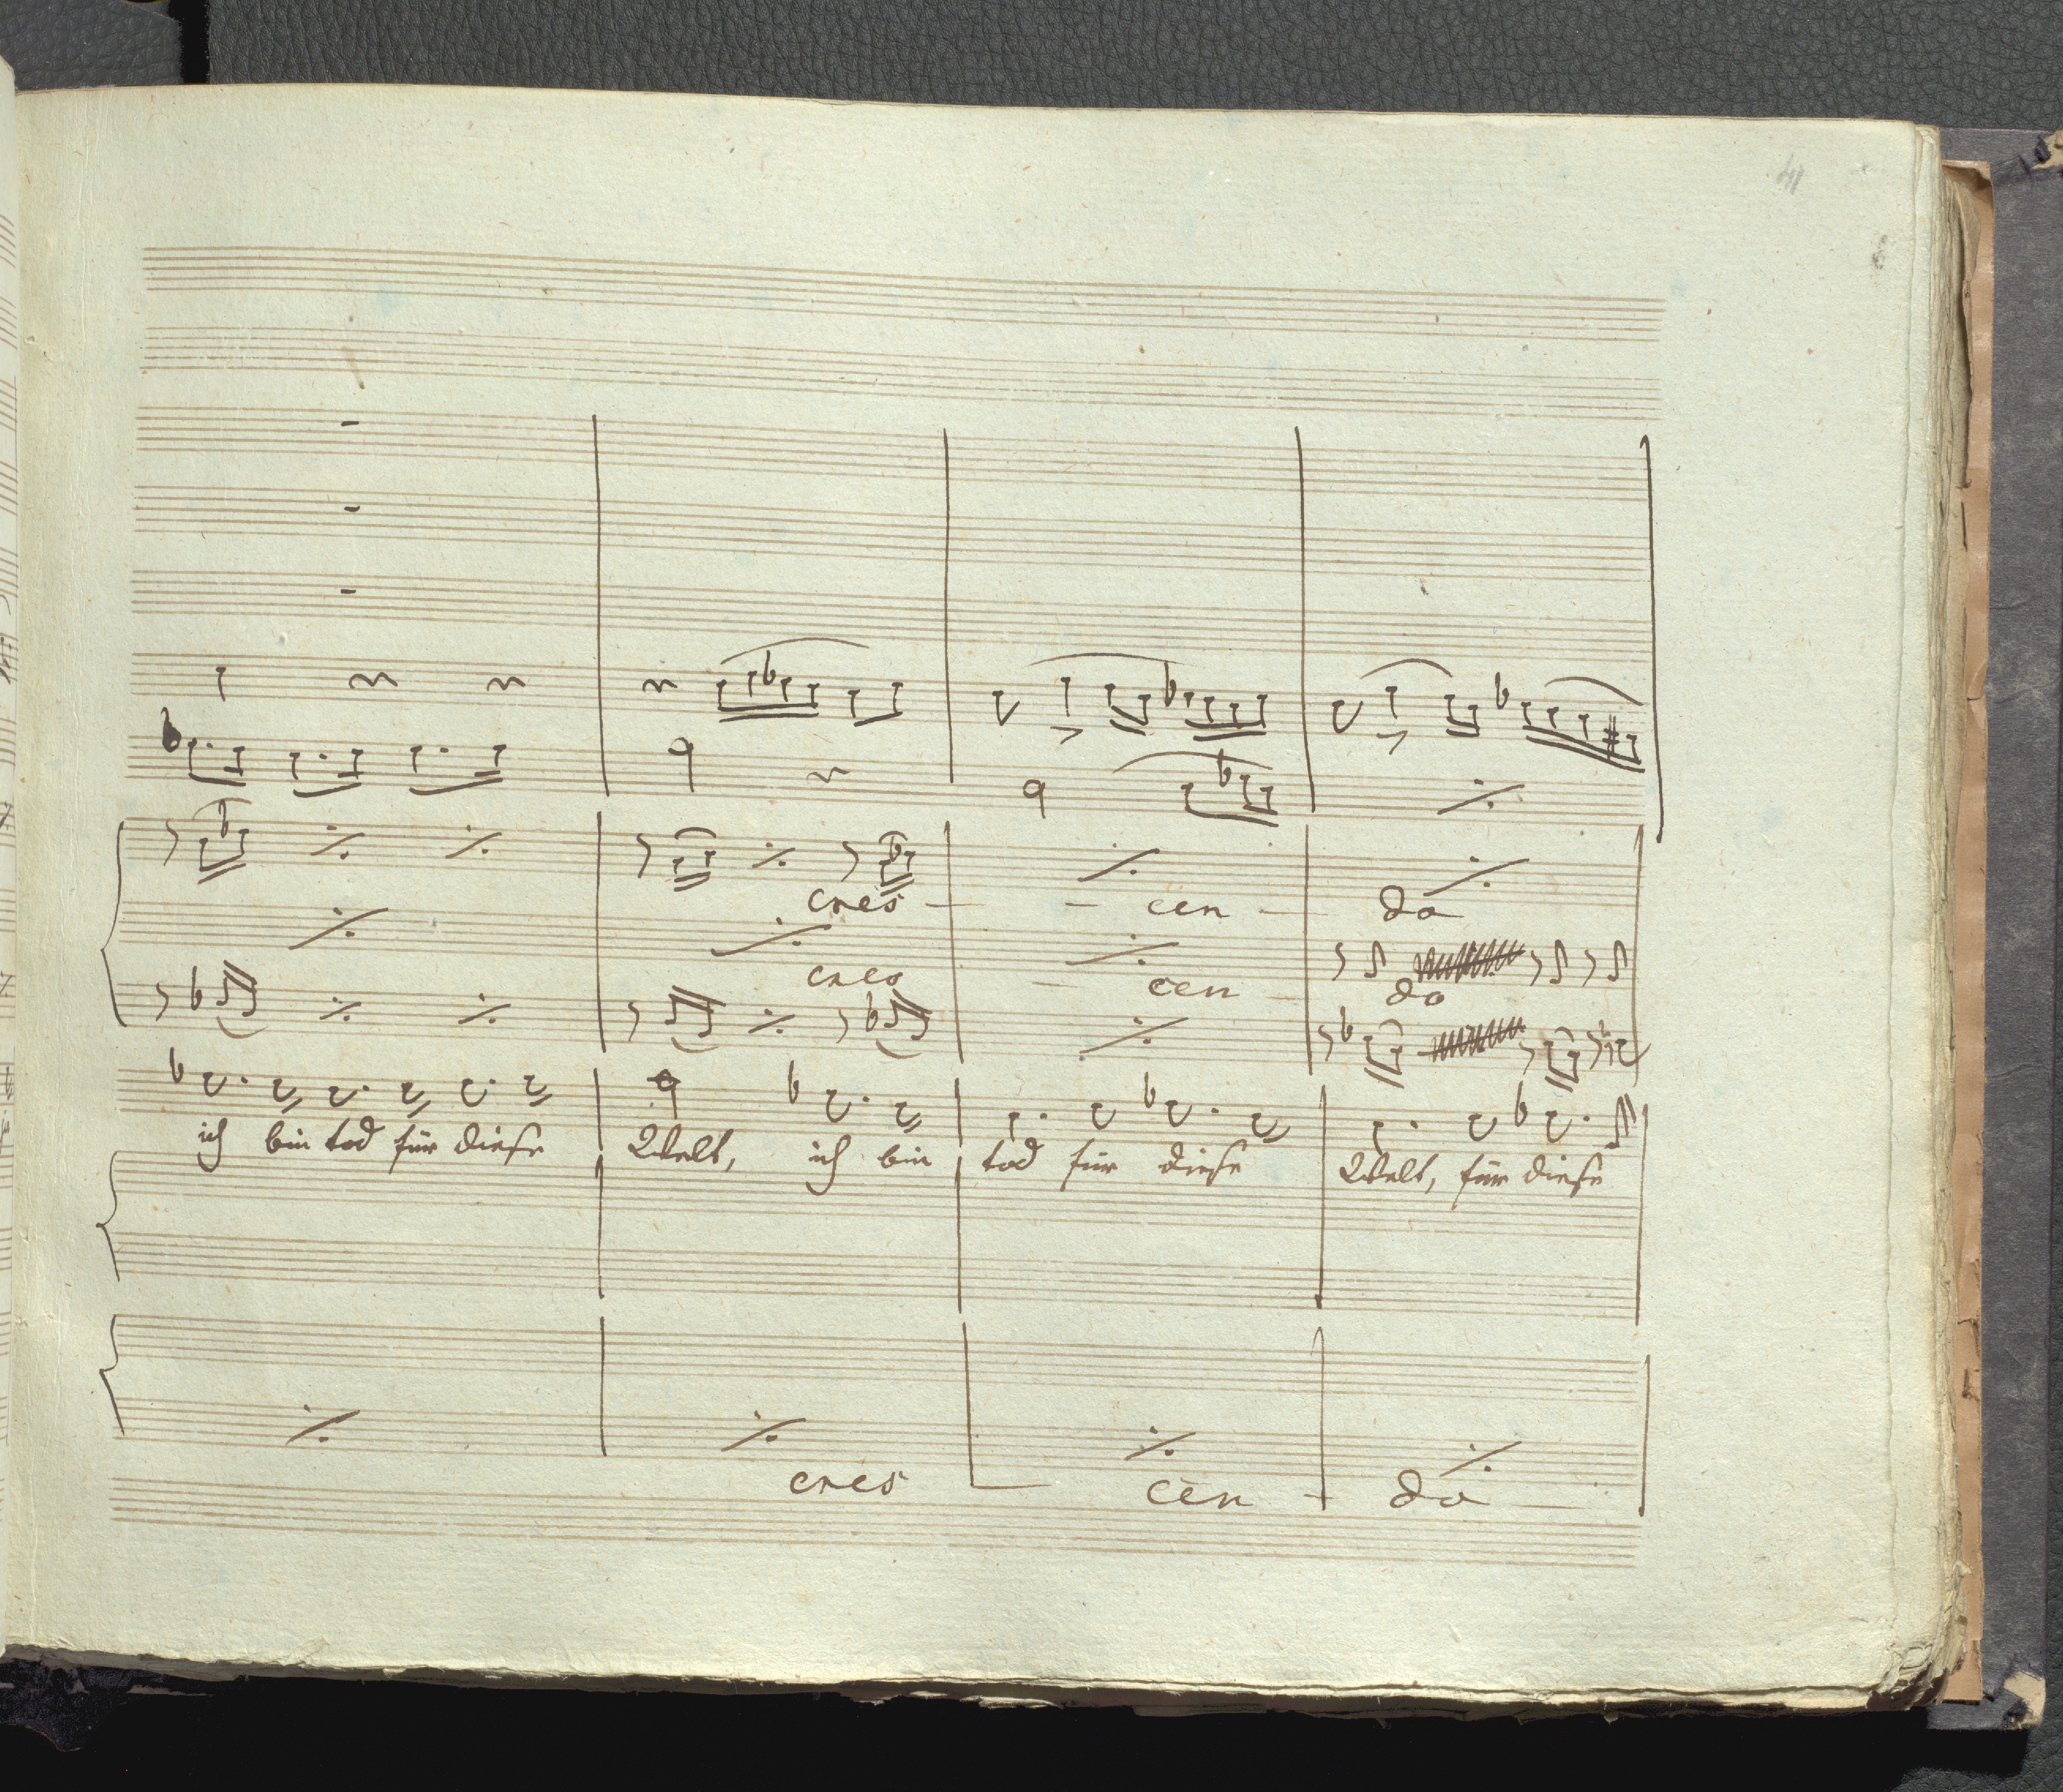 41
cres - - cen - do
cres - cen - do
ich bin tod für diese Welt, ich bin tod für diese Welt, für diese
cres - cen - do -